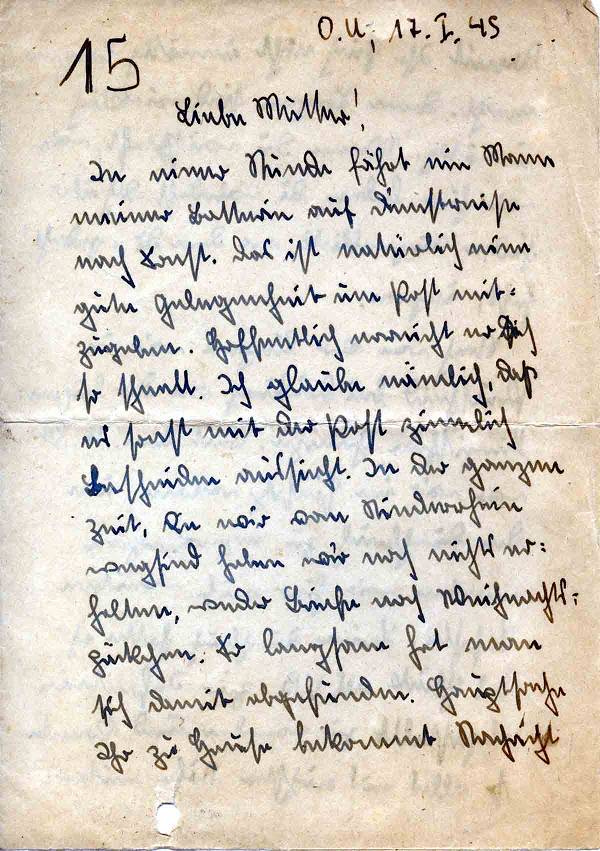 O.U., 17.I.45
15
Liebe Mutter!
In einer Stunde fährt ein Mann
meiner Batterie auf Dienstreise
nach Soest. Das ist natürlich eine
gute Gelegenheit um Post mit-
zugeben. Hoffentlich erreicht er Dich
so schnell. Ich glaube nämlich, daß
es sonst mit der Post ziemlich
bescheiden aussieht. In der ganzen
Zeit, wir vom Niederrhein
wegsind haben wir noch nichts er=
halten, weder Briefe noch Weihnachts=
päckchen. So langsam hat man
sich damit abgefunden. Hauptsache
Ihr zu Hause bekommt Nachricht